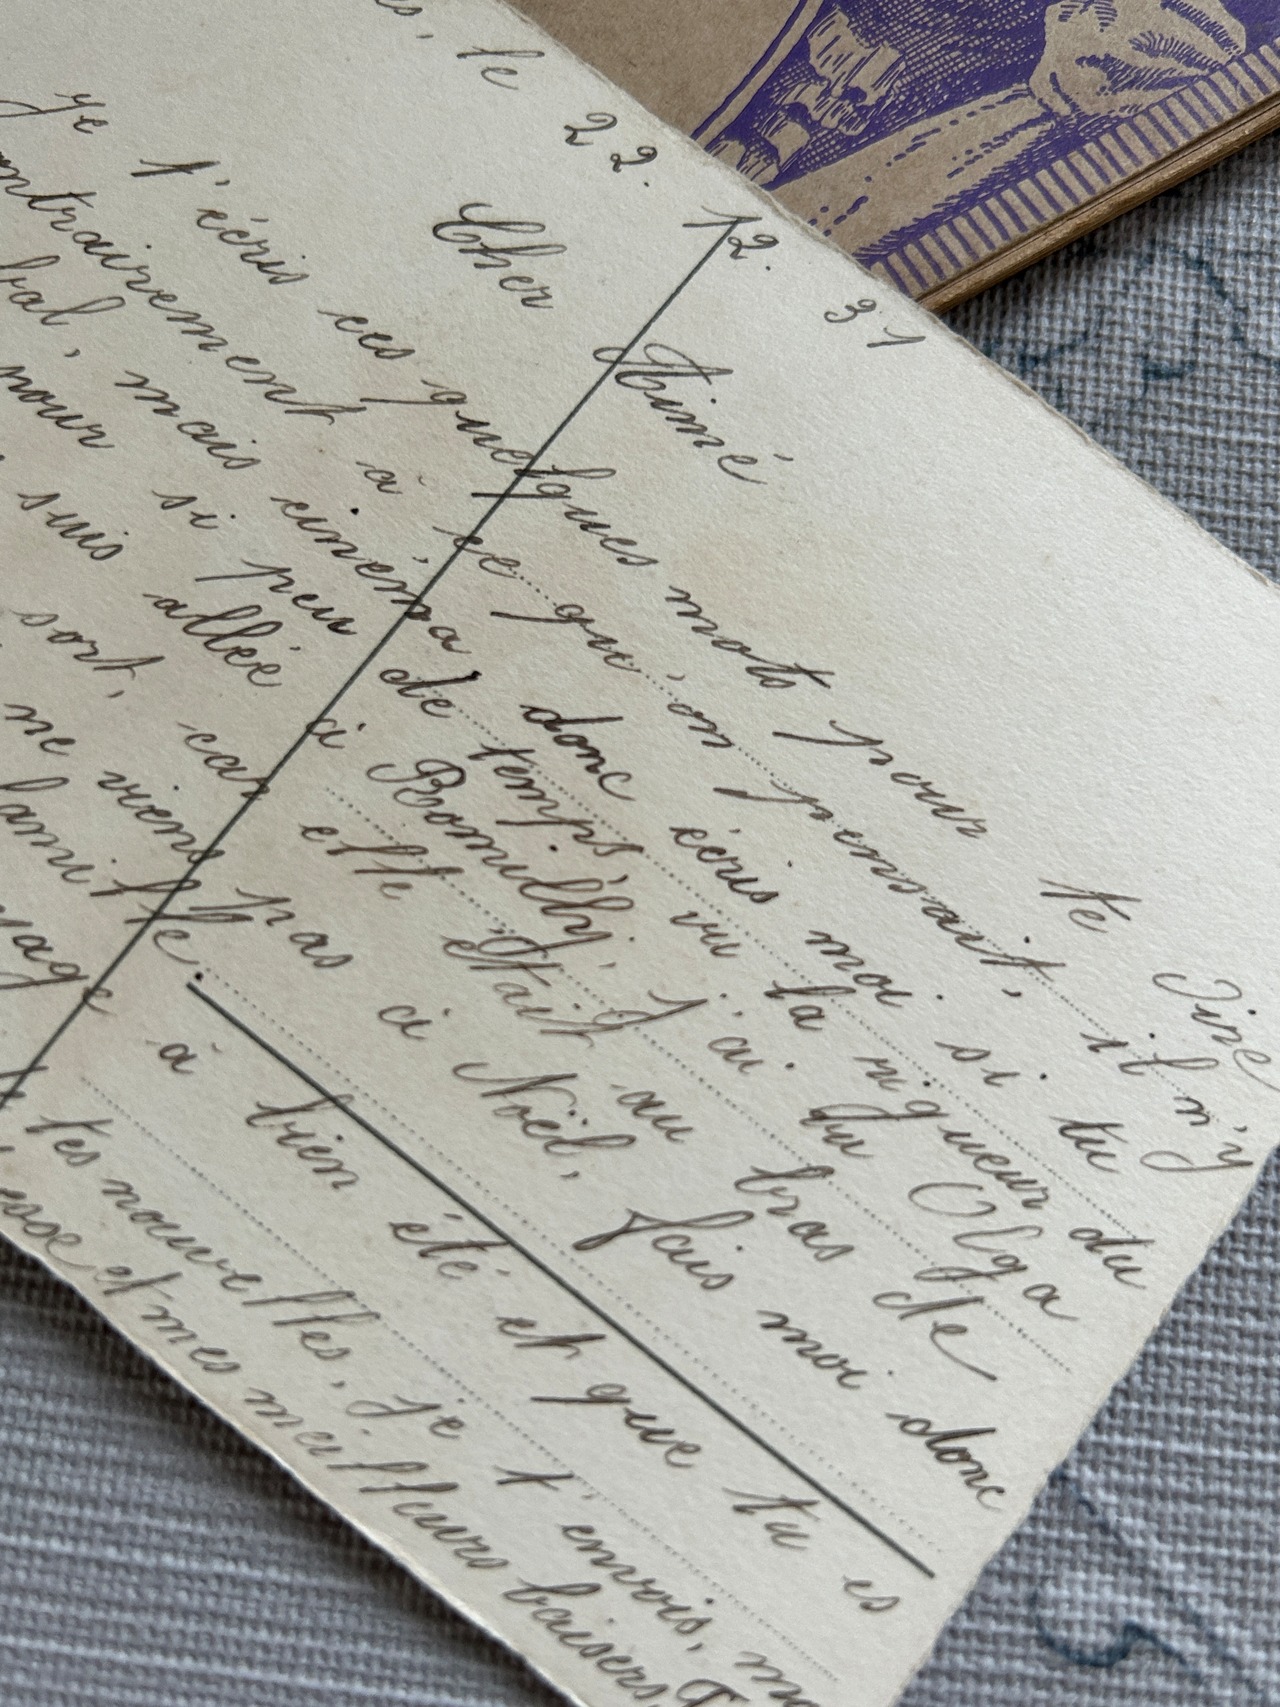 le 22. 12. 31
Cher Aimé
Je t'écris ces quelques mots pour te dire
à ce qu'on pensait, il n'y
bal, mais cinéma donc écris moi si tu
pour si peu de temps, vu la rigueur du
suis allée à Romilly. J'ai vu Olga
sort, car elle était au bras de
ne viens pas ci Noël, fais moi donc
à bien été et que tu es
tes nouvelles, je t'envois,
et mes meilleurs baisers